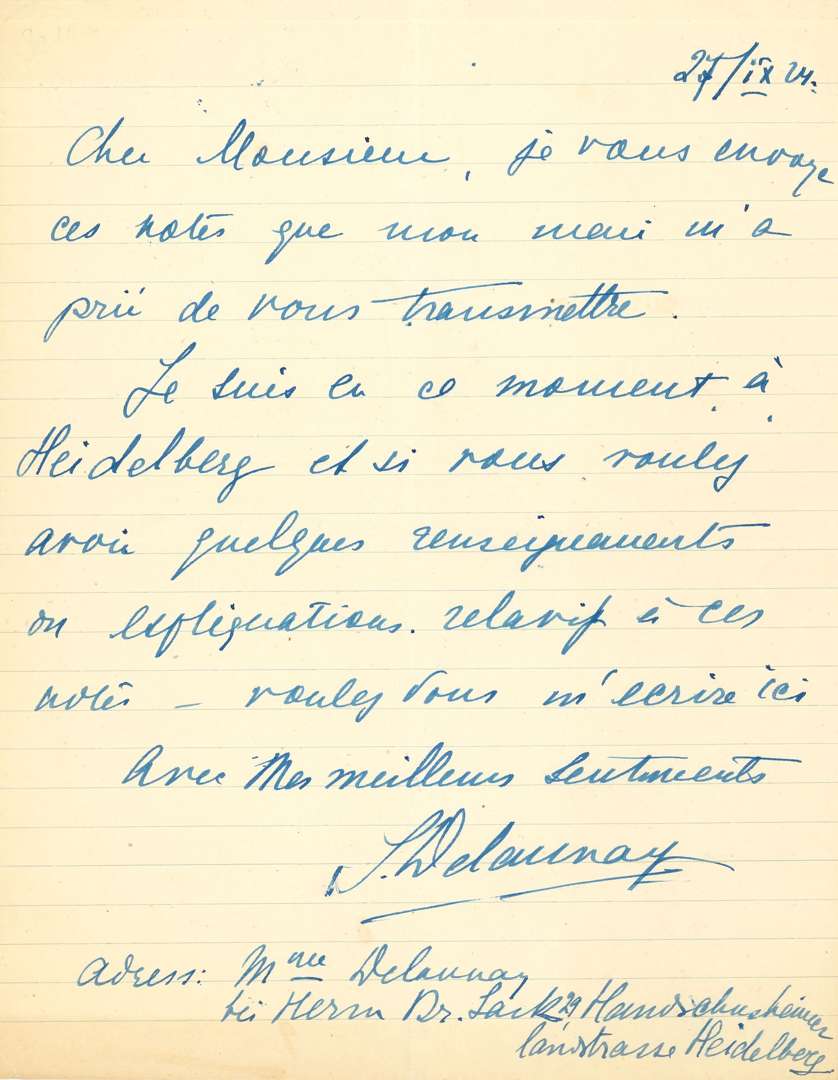 27/IX 24.
Cher Monsieur, je vous envoye
ces notes que mon mari m'a
prié de vous transmettre.
Je suis en ce moment à
Heidelberg et si vous voulez
avoir quelques renseignements
ou expliquations. relatif à ces
notes – voulez vous m'ecrire ici
Avec Mes meilleurs sentiments
S. Delaunay
Adress: Mme Delaunay
bei Herrn Dr. 29 Handschusheimer
landstrasse Heidelberg